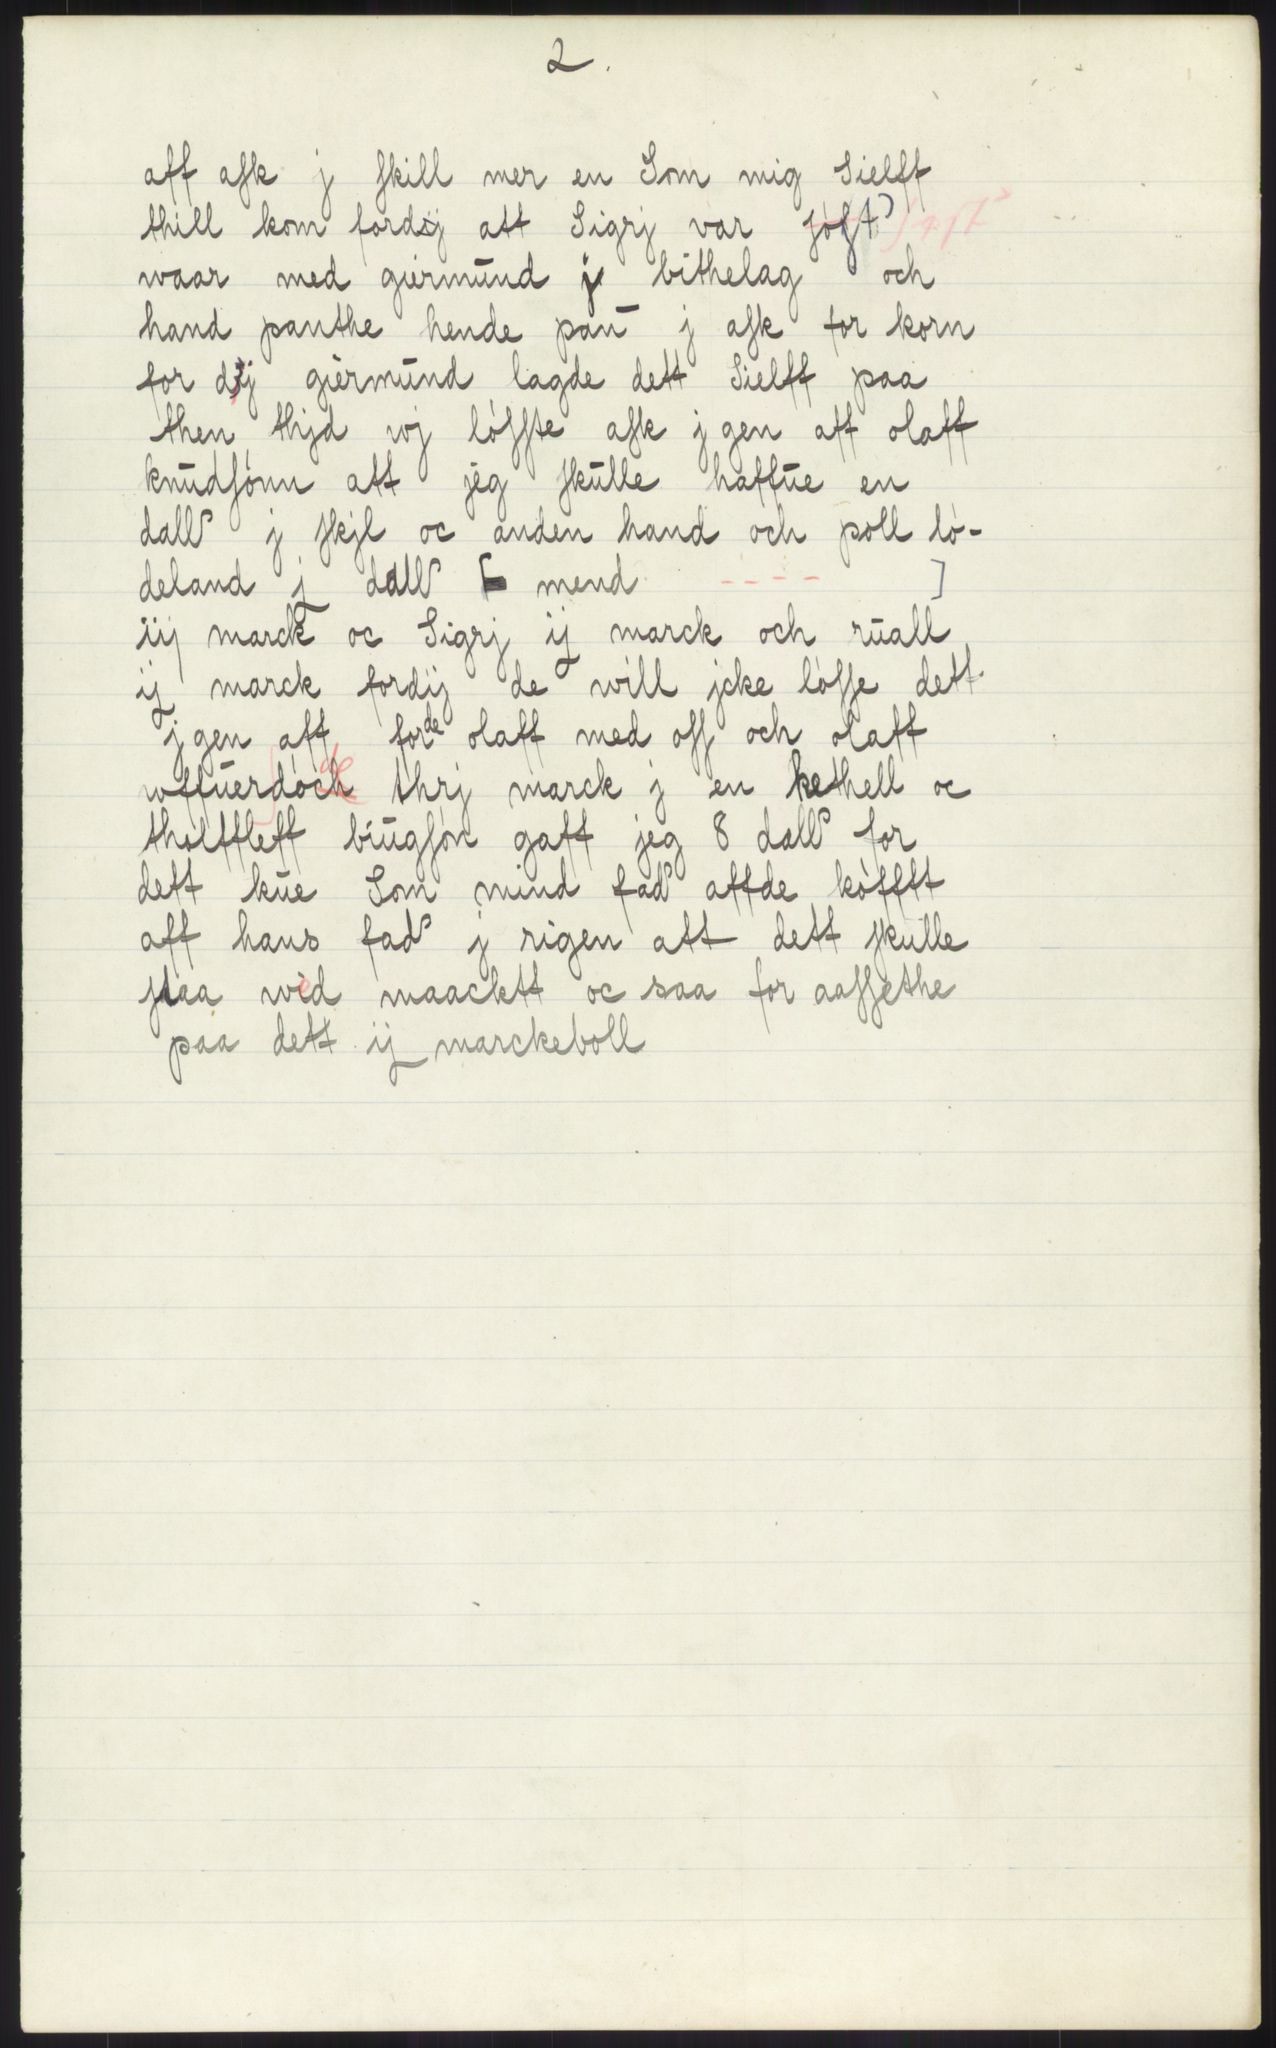 2.
aff ask j skill mer en Som mig Sielff
thill kom fordij att Sigrj var
waar med giermūnd j bithelag och
hand panthe hende paū j ask for korn
for dij giermūnd lagde dett Sielff paa
then thijd wj lósste ask j gen aff olaff
knūdsónn att jeg skūlle haffūe en
dall j skjl oc anden hand och poll ló-
deland j dall [ mend - - - - ]
iij marck oc Sigrj ij marck och rūall
ij marck fordij de will jcke lósse dett
j gen aff forde olaff med oss och olaff
wffūerdóch thrj marck j en kethell oc
tholffleff biūgsón gaff jeg 8 dall for
dett kūe Som mind fad affde kófftt
aff hans fad j rigen att dett skūlle
staa wed maacktt oc saa for aassethe
paa dett ij marckeboll